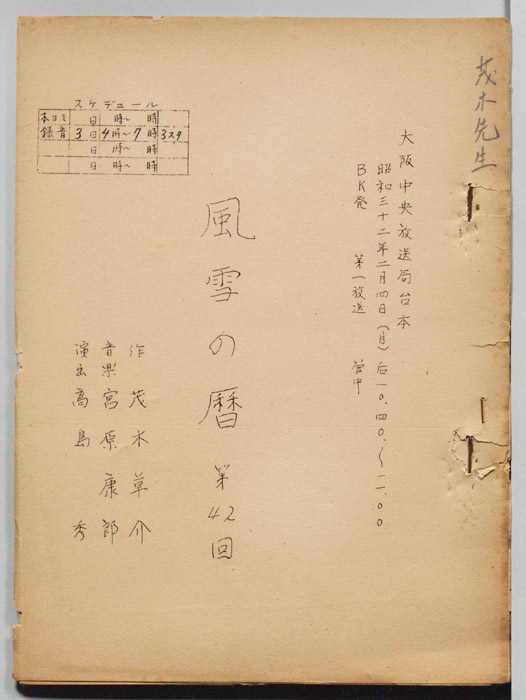 茂木先生
大阪中央放送局台本
昭和三十二年二月四日(月)后一〇.四〇.〜一一.〇〇
BK発 第一放送 管中
風雪の暦 第42回
作 茂木草介
音楽 宮原康郎
演出 高島 秀
スケデュール
本ヨミ 日 時〜 時
録音 3日 4時〜7時 3スタ
日 時〜 時
日 時〜 時